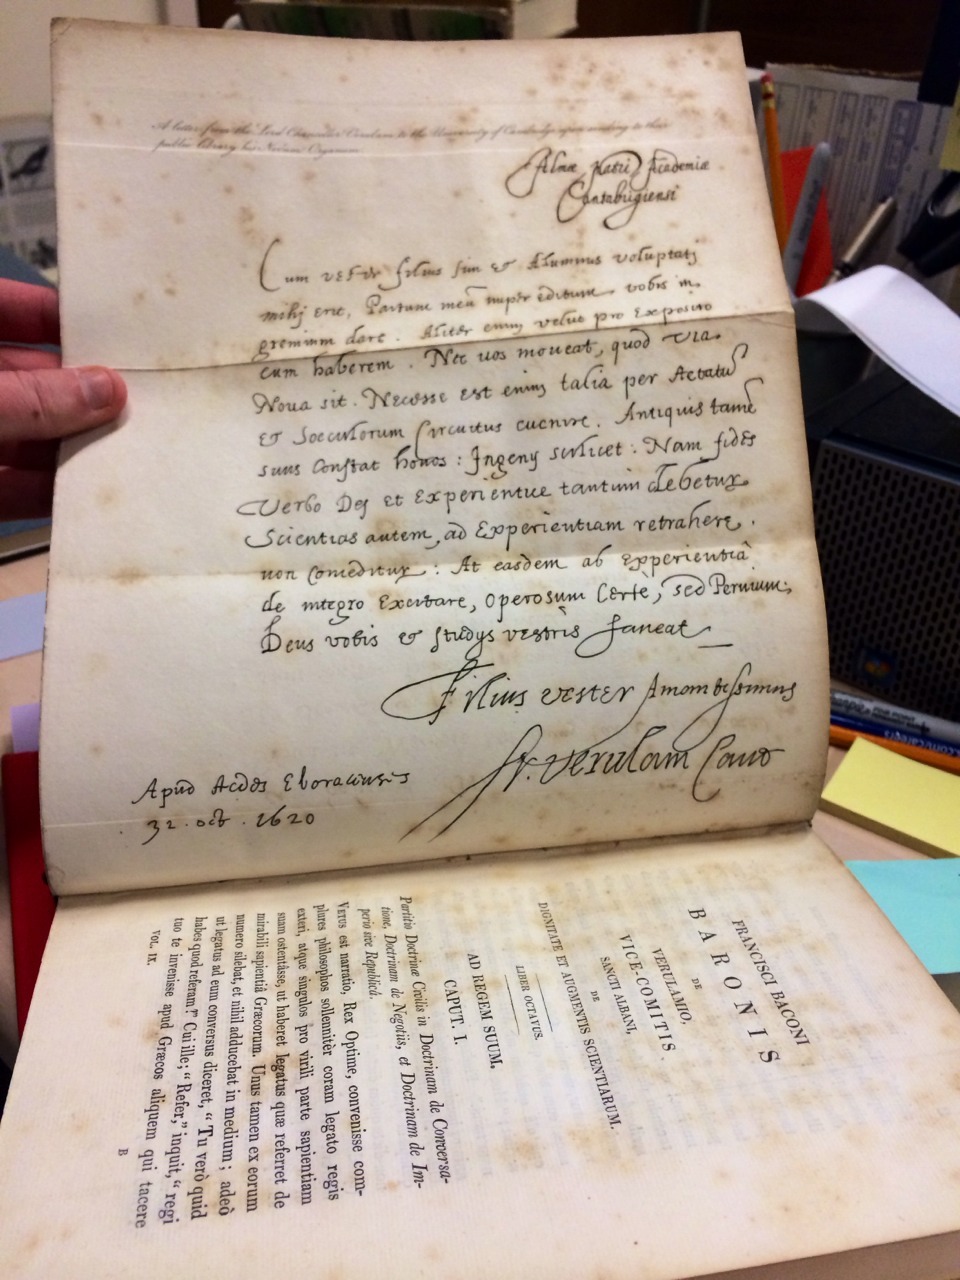 A letter from the Lord Chancellor Verulam to the University of Cambridge upon sending to their
public library his Novum Organum
Almæ Matri Academiæ
Cantabrigiensi
Cum vester filius sim et Alumnus voluptatj
mihj erit, Partum meū nuper editum vobis in
gremium dare. Aliter enim velut pro Exposito
eum haberem. Nec vos moveat, quod Via
Noua sit. Necesse est enim talia per Aetatū
et Soeculorum Circuitus euenire. Antiquis tamē
suus Constat honos: Ingenij scilicet: Nam fides
Verbo Dej et Experientiæ tantum debetur.
Scientias autem, ad Experientiam retrahere,
non Conceditur: At easdem ab Experientiā
de integro Excitare, operosum Certe, sed Peruium.
Deus vobis et studijs vestris faueat
Filius vester Amantissimus
Fr. Verulam Canc
Apud Aedes Eboracensis
31. oct. 1620
FRANCISCI BACONI
BARONIS
DE
VERULAMIO,
VICE-COMITIS
SANCTI ALBANI,
DE
DIGNITATE ET AUGMENTIS SCIENTIARUM.
LIBER OCTAVUS.
AD REGEM SUUM.
CAPUT. I.
Partitio Doctrinæ Civilis in Doctrinam de Conversa-
tione, Doctrinam de Negotiis, et Doctrinam de Im-
perio sive Republicâ.
VETUS est narratio, Rex Optime, convenisse com-
plures philosophos sollennitèr coram legato regis
exteri, atque singulos pro virili parte sapientiam
suam ostentâsse, ut haberet legatus quæ referret de
mirabili sapientiâ Græcorum. Unus tamen ex eorum
numero silebat, et nihil adducebat in medium; adeò
ut legatus ad eum conversus diceret, "Tu verò quid
habes quod referam?" Cui ille; "Refer," inquit, "regi
tuo te invenisse apud Græcos aliquem qui tacere
VOL. IX.
B